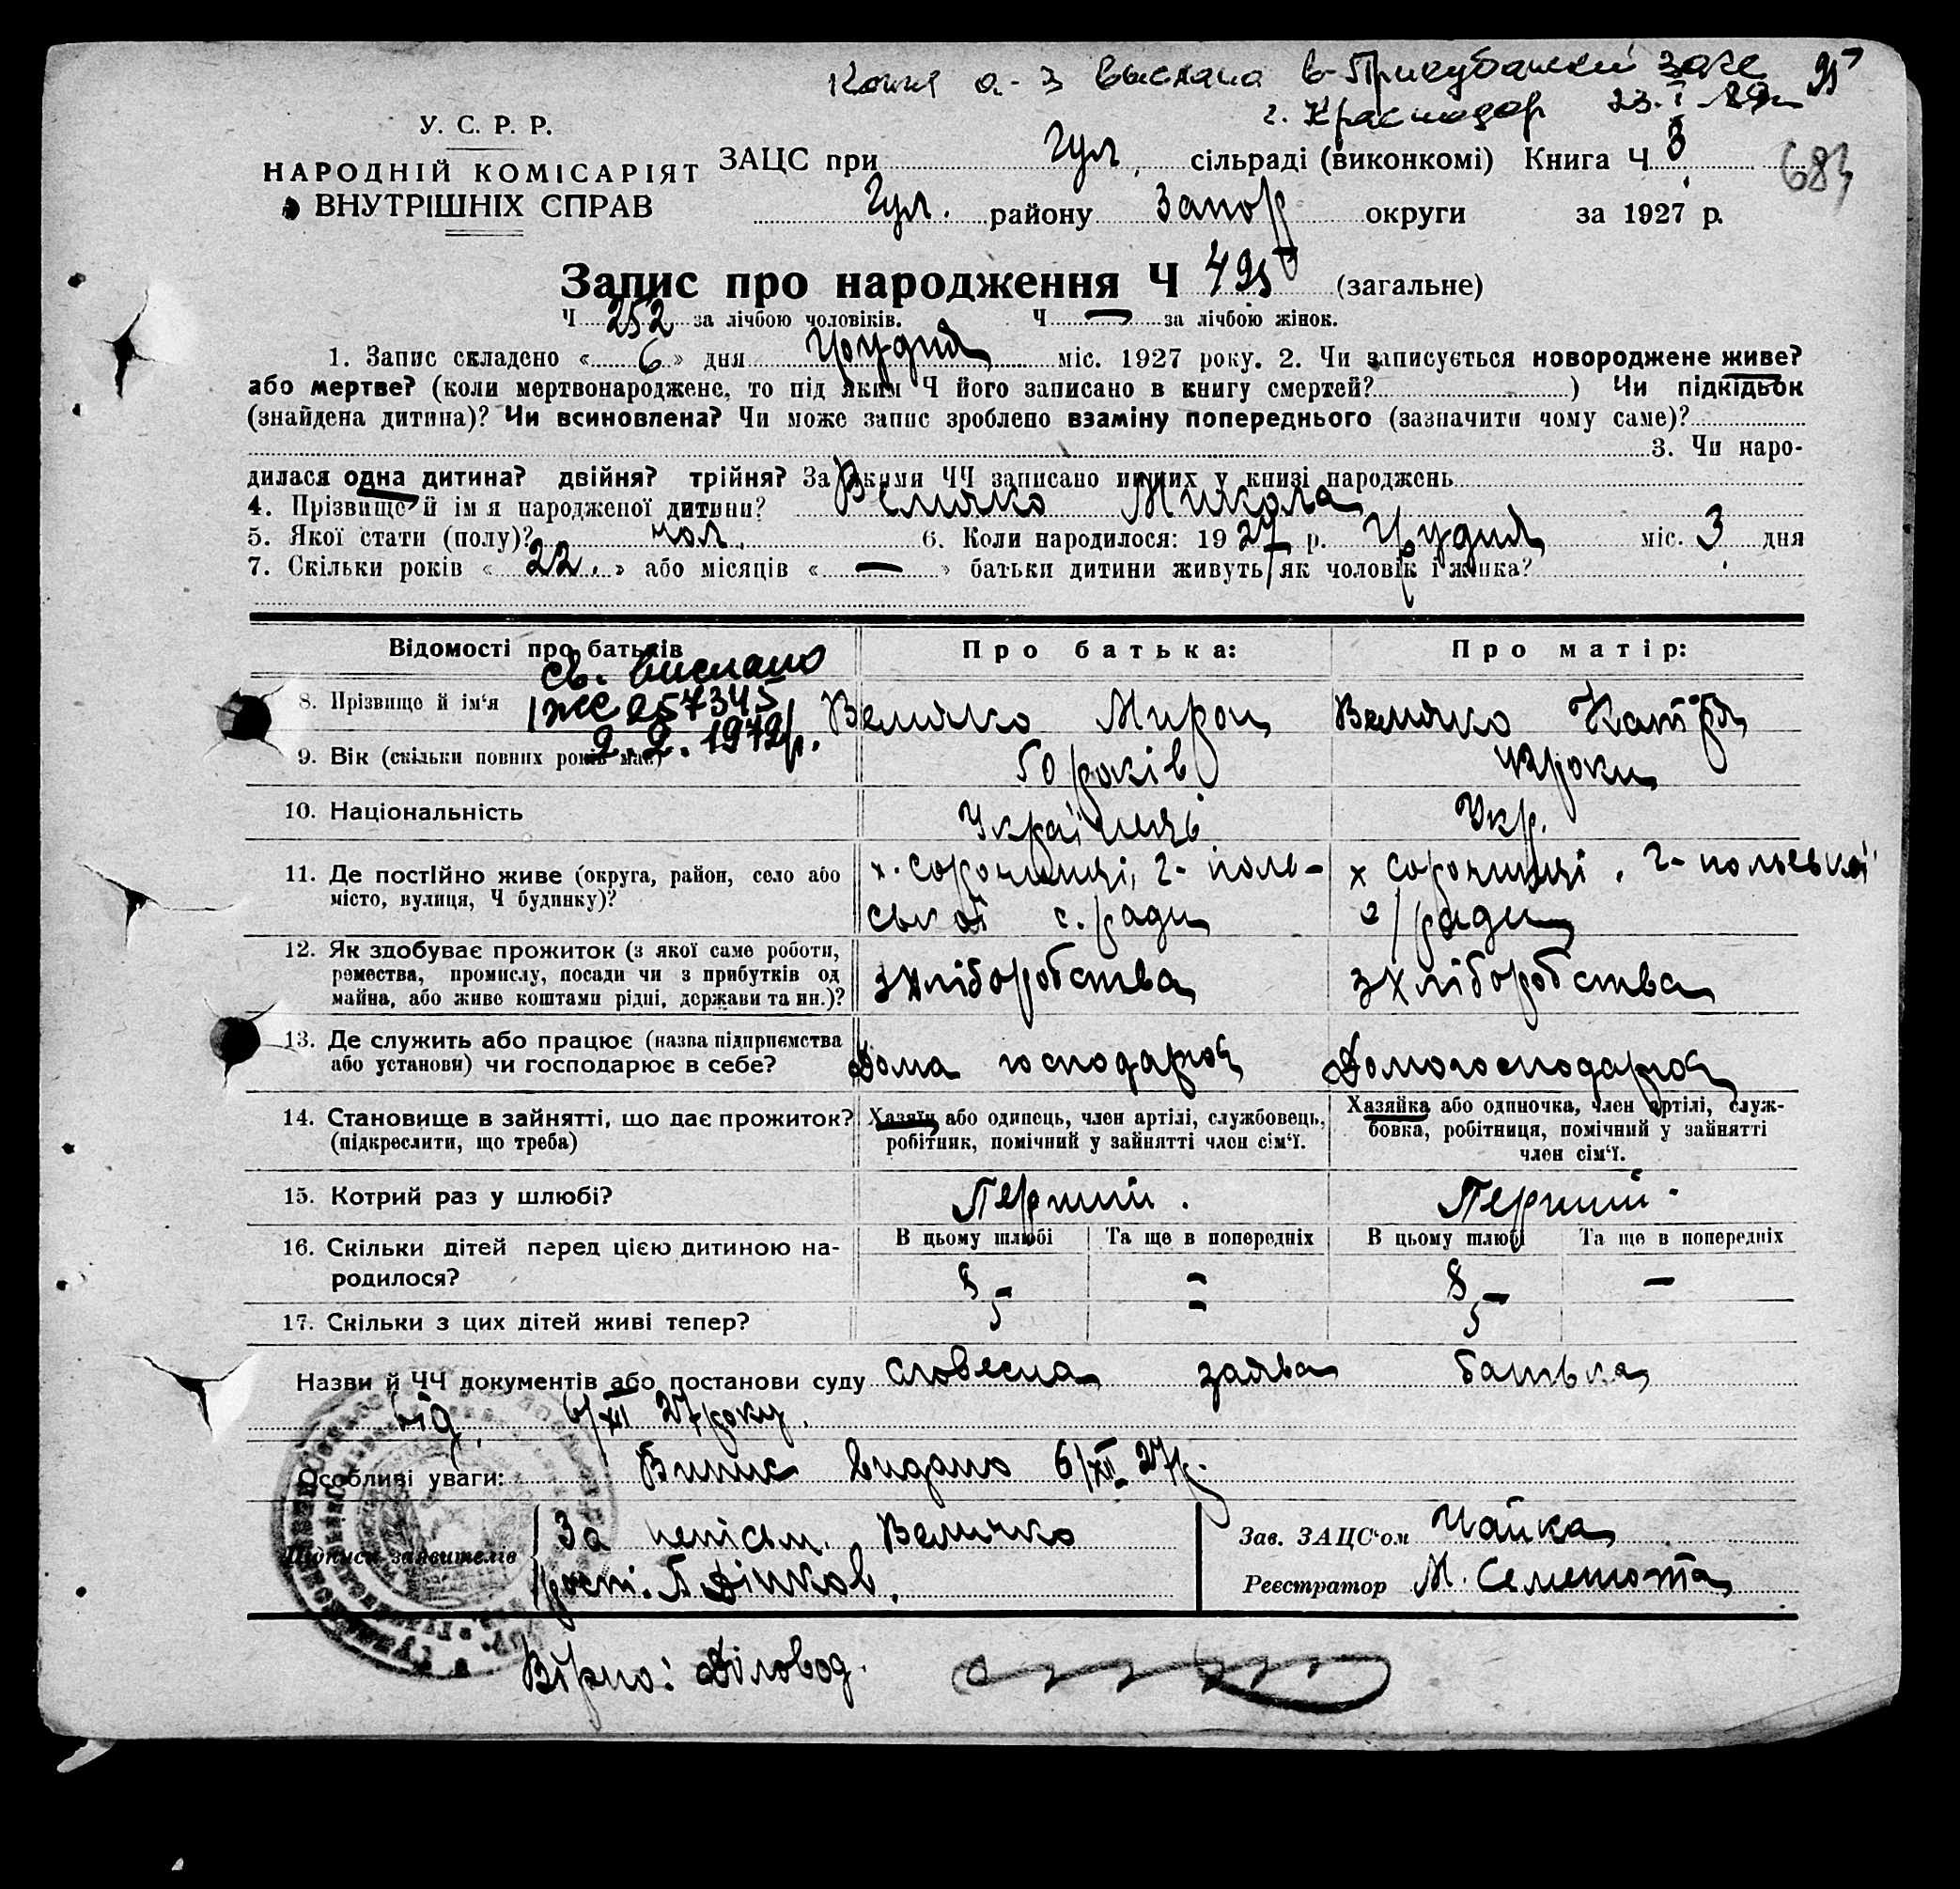 Копия а-з выслана в Прикубанский загс 95
г. Краснодар 23.I 89г
У. С. Р. Р.
НАРОДНІЙ КОМІСАРІЯТ
ВНУТРІШНІХ СПРАВ
ЗАЦС при Гул. сільраді (виконкомі) Книга Ч 8 683
Гул. району Запор округи за 1927 р.
Запис про народження Ч 495 (загальне)
Ч 252 за лічбою чоловіків. Ч — за лічбою жінок.
1. Запис складено «6» дня Грудня міс. 1927 року. 2. Чи записується новороджене живе?
або мертве? (коли мертвонароджене, то під яким Ч його записано в книгу смертей? ) Чи підкідьок
(знайдена дитина)? Чи всиновлена? Чи може запис зроблено взаміну попереднього (зазначити чому саме)?
3. Чи наро-
дилася одна дитина? двійня? трійня? За якими ЧЧ записано инших у книзі народжень
4. Прізвище й ім я народженої дитини? Величко Микола
5. Якої стати (полу)? чол. 6. Коли народилося: 1927 р. Грудня міс. 3 дня
7. Скільки років «22.» або місяців «—» батьки дитини живуть як чоловік і жінка?
Відомості про батьків Про батька: Про матір:
св. вислано
8. Прізвище й ім'я Величко Мирон Величко Катря
ІЖС 257345
2.2.1972р.
9. Вік (скільки повних років має) 50 років роки
10. Національність Українець Укр.
11. Де постійно живе (округа, район, село або х. Сорочинці, г-поль- х Сорочинці, г-польської
місто, вулиця, Ч будинку)? ської с. ради с/ради
12. Як здобуває прожиток (з якої саме роботи,
ремества, промислу, посади чи з прибутків од з хліборобства з хліборобства
майна, або живе коштами рідні, держави та ин.)?
13. Де служить або працює (назва підприємства
або установи) чи господарює в себе? Дома господарює Домогосподарює
14. Становище в зайнятті, що дає прожиток? Хазяїн або одинець, член артілі, службовець, Хазяйка або одиночка, член артілі, служ-
(підкреслити, що треба) робітник, помічний у зайнятті член сім'ї. бовка, робітниця, помічний у зайнятті
член сім'ї.
15. Котрий раз у шлюбі? Перший. Перший.
16. Скільки дітей перед цією дитиною на- В цьому шлюбі Та ще в попередніх В цьому шлюбі Та ще в попередніх
родилося? 8 – 8 —
17. Скільки з цих дітей живі тепер? 5 – 5
Назви й ЧЧ документів або постанови суду словесна заява батька
від 6/XII 27 року.
Особливі уваги: Випис видано 6/XII 27р.
Підписи заявителів За непісьм. Величко Зав. ЗАЦС'ом Чайка
Реєстратор М.
Вірно: Діловод.